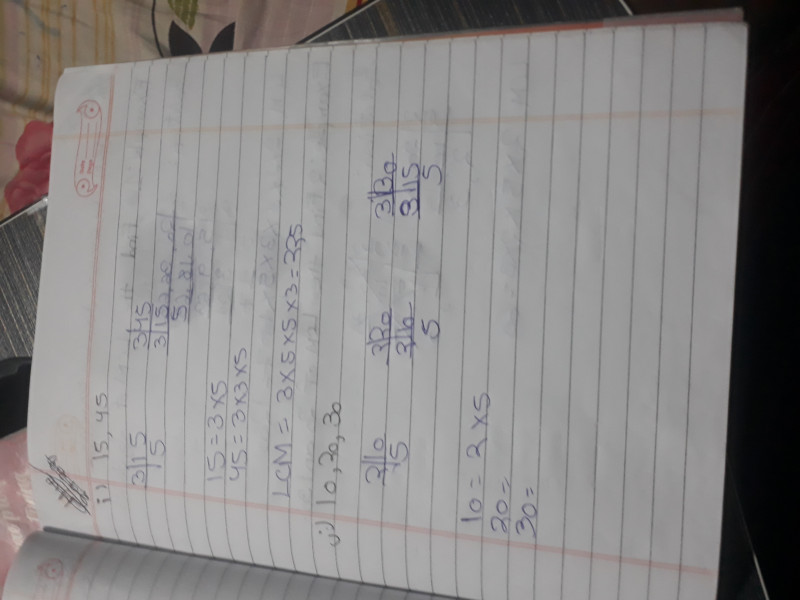 i) 15, 45
3|15 3|45
5 3|15
5
15 = 3 x 5
45 = 3 x 3 x 5
LCM = 3 x 5 x 5 x 3 = 225
ii) 10, 20, 30
2|10 2|20 3|30
5 2|10 3|15
5 5
10 = 2 x 5
20 =
30 =